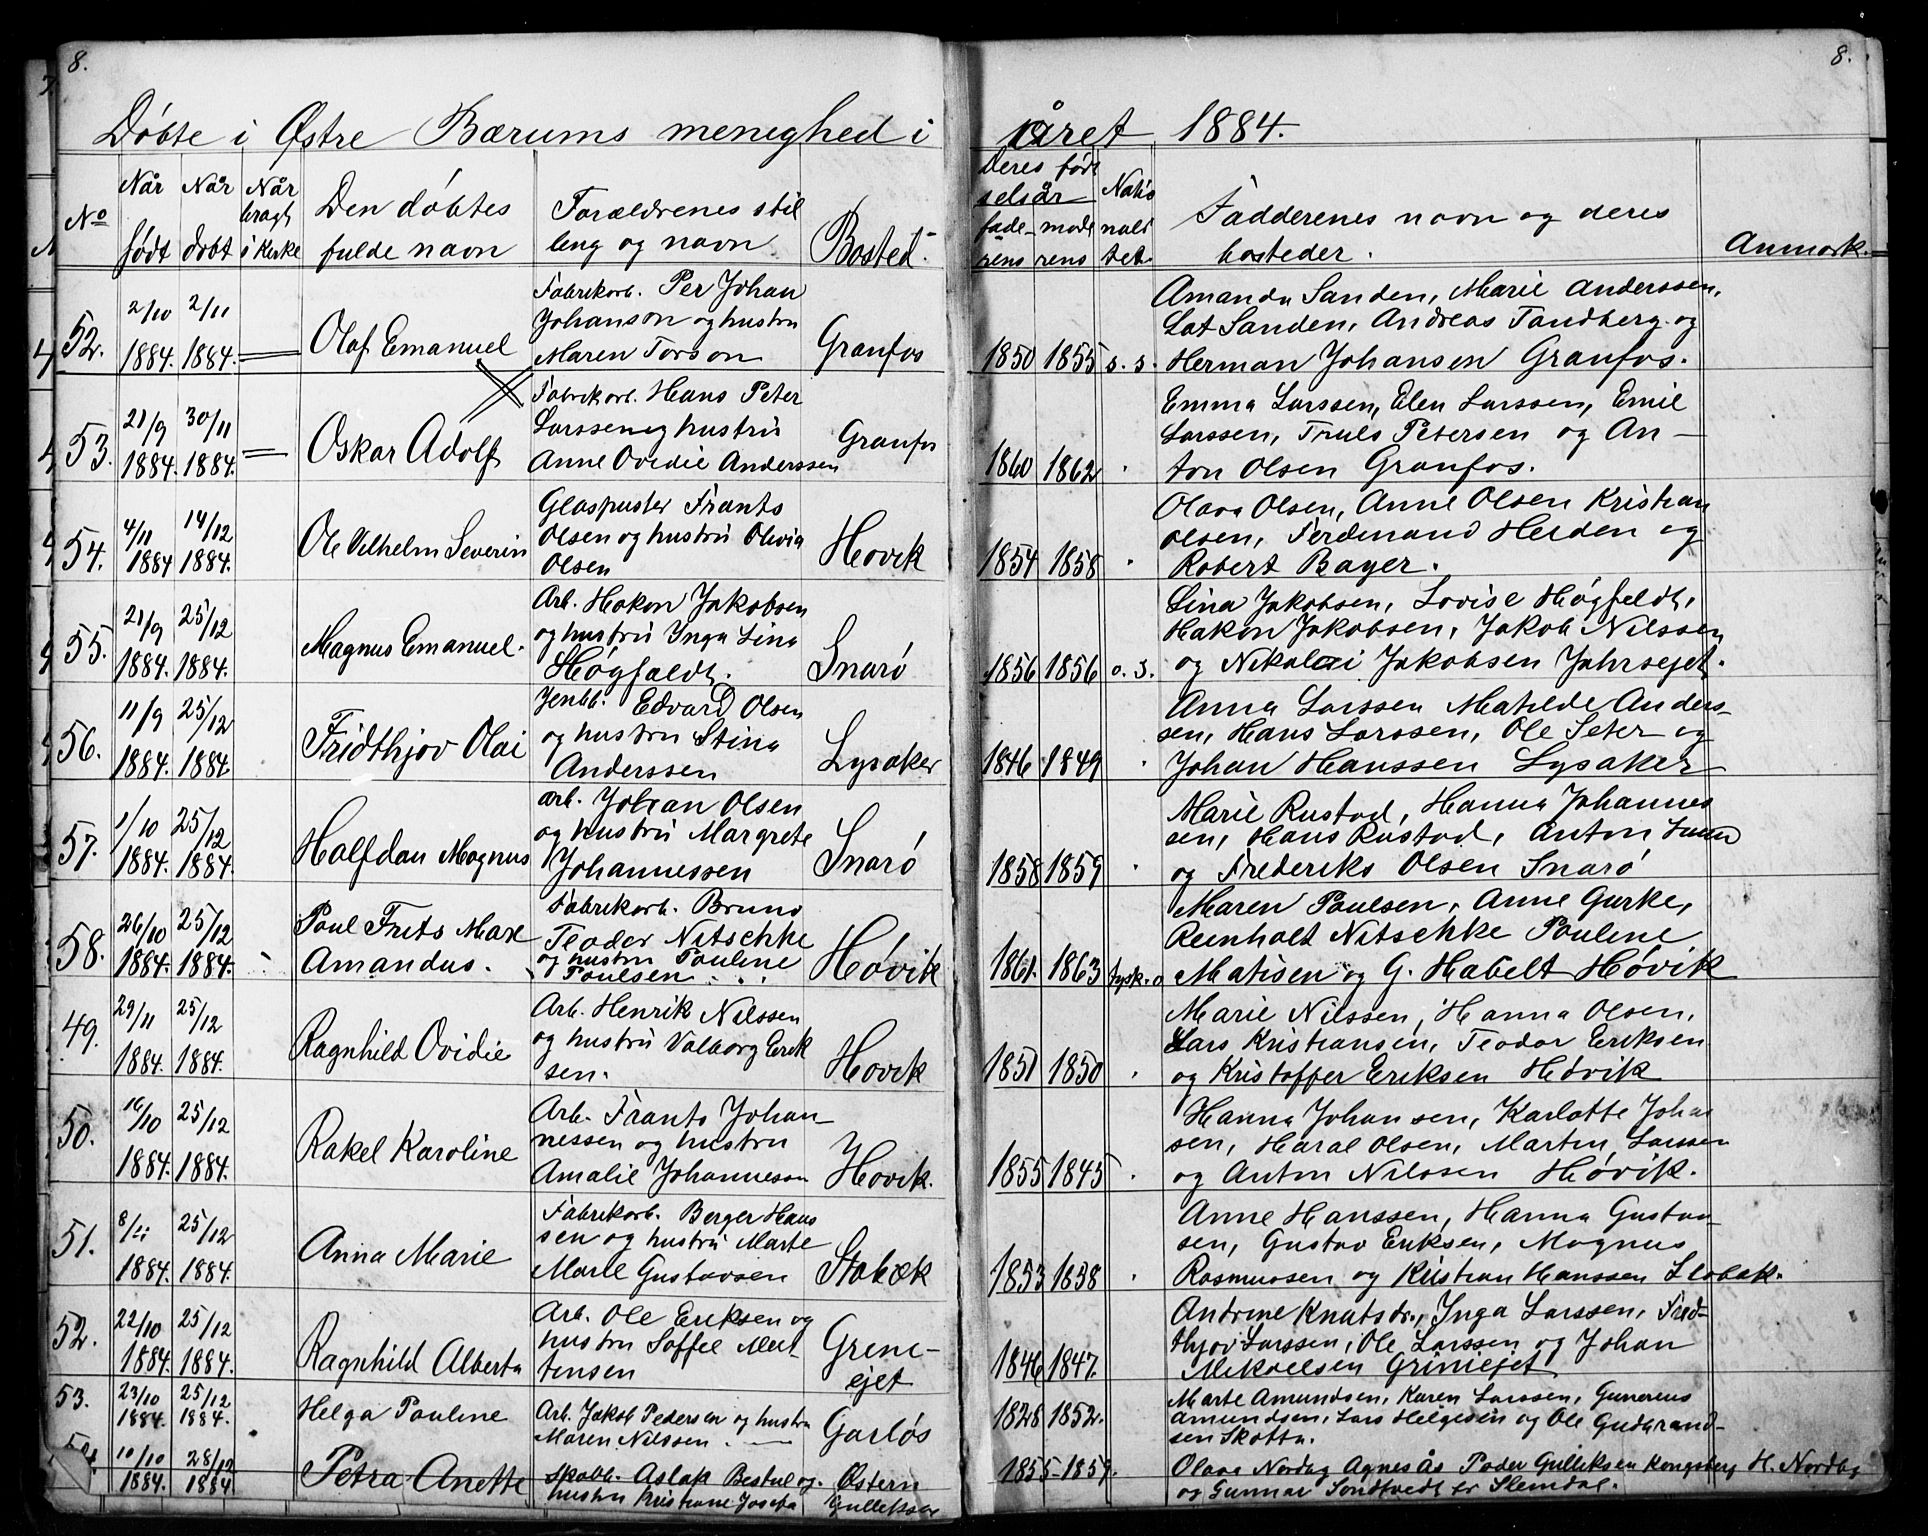 8.
8.
Døbte i Østre Bærums menighed i året 1884.
No
Når født
Når døbt
Når bragt i kirke
Den døbtes fulde navn
Forældrenes stil
ling og navn
Bosted.
Deres fød
selsår
fade-
rens
mode
rens
Natio
nali
tet.
Fadderenes navn og deres
bosteder.
Anmærk.
52.
2/10 1884.
2/11 1884.
Olaf Emanuel
Fabrikarb. Per Johan
Johanson og hustru
Maren Torson
Granfos
1850 1855 s. s.
Amanda Sanden, Marie Anderssen,
Lat Sanden, Andreas Tandberg og
Herman Johansen Granfos.
53.
21/9 1884.
30/11 1884.
Oskar Adolf
Fabrikarb. Hans Peter
Larssen og hustru
Anne Ovidie Anderssen
Granfos
1860 1862
Emma Larssen, Elen Larssen, Emil
Larssen, Truls Petersen og An-
ton Olsen Granfos.
54.
4/11 1884
14/12 1884.
Ole Vilhelm Severin
Glaspuster Frants
Olsen og hustru Olivia
Olsen
Høvik
1854 1858
Olava Olsen, Anne Olsen Kristian
Olsen, Ferdinand Heiden og
Robert Bayer.
55.
21/9 1884.
25/12 1884.
Magnus Emanuel.
Arb. Hakon Jakobsen
og hustru Inga Lina
Høgfaldt.
Snarø
1856 1856 o. s.
Lina Jakobsen, Lovise Høgfeldt,
Hakon Jakobsen, Jakob Nilssen
og Nikolai Jakobsen Jahrsejet.
56.
11/9 1884.
25/12 1884.
Fridthjov Olai
Jenbb. Edvard Olsen
og hustru Stina
Anderssen
Lysaker
1846 1849
Anna Larssen Matilde Anders-
sen, Hans Larssen, Ole Seter og
Johan Hanssen Lysaker
57.
1/10 1884.
25/12 1884.
Halfdan Magnus
arb. Johan Olsen
og hustru Margrete
Johannessen
Snarø
1858 1859
Marie Rustad, Hanna Johannes
sen, Hans Rustad, Anton
og Frederiks Olsen Snarø
58.
26/10 1884.
25/12 1884.
Paul Frits Max
Amandus.
Fabrikarb. Bruno
Teodor Nitschke
og hustru Pauline
Poulsen
Høvik
1861. 1863 tysk. o
Maren Poulsen, Anne Gurke,
Reinholt Nitschke Pauline
Matisen og G. Habelt Høvik
49.
29/11 1884.
25/12 1884.
Ragnhild Ovidie
Arb. Henrik Nilssen
og hustru Valborg Erik
sen.
Høvik
1851 1850
Marie Nilssen, Hanna Olsen,
Lars Kristiansen, Teodor Eriksen
og Kristoffer Eriksen Høvik
50.
16/10 1884.
25/12 1884.
Rakel Karoline
Arb. Frants Johan
nessen og hustru
Amalie Johannessn
Høvik.
1855 1845
Hanna Johansen, Karlotte Johan
sen, Haral Olsen, Martin Larssen
og Anton Nilssen Høvik.
51.
8/11 1884.
25/12 1884.
Anna Marie
Fabrikarb. Berger Hans
sen og hustru Marte
Marie Gustavsen
Stabæk
1853 1858
Anne Hanssen, Hanna Gustav-
sen, Gustav Eriksen, Magnus
Rasmussen og Kristian Hanssen Stabæk.
52.
22/10 1884.
25/12 1884.
Ragnhild Alberta
Arb. Ole Eriksen og
hustru Soffie Mar-
tensen
Grini-
ejet
1846 1847.
Andrine Knutsdr., Inga Larssen, Frid-
thjov Larssen, Ole Larssen og Johan
Mikaelsen Griniejet
53.
23/10 1884.
25/12 1884.
Helga Pauline
Arb. Jakob Pedersen og hustru
Maren Nilssen.
Garløs
1828 1852.
Marte Amundsen, Karen Larssen, Gunerius
Amundsen, Lars Helgesen og Ole Gudbrand-
sen Skotta.
54.
10/10 1884.
28/12 1884
Petra Anette
Skobb. Aslak Bestul og
hustru Kristiane Josefa
Østern
Gulleksen
1855-1859.
Olava Nordby Agnes Ås Peder Gulliksen Kongsberg H. Nordby
og Gunnar Sondtvedt er Slemdal.